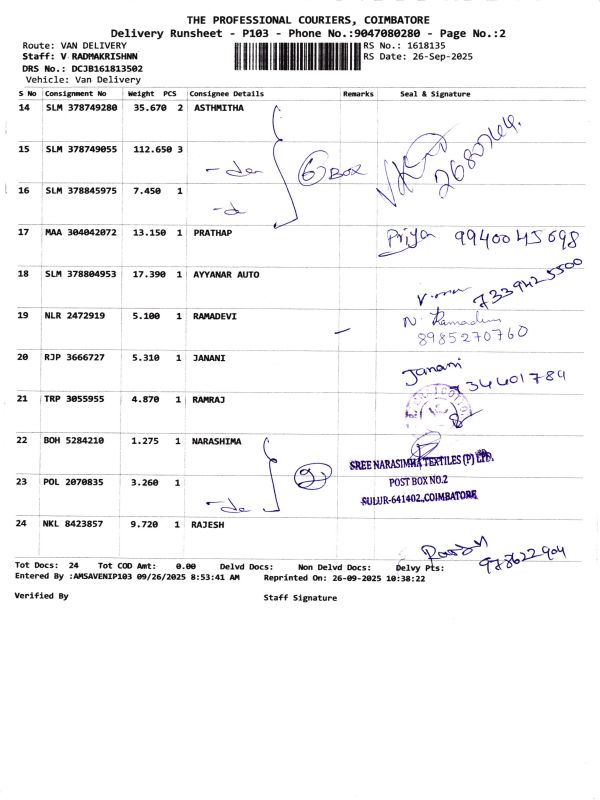 THE PROFESSIONAL COURIERS, COIMBATORE
Delivery Runsheet - P103 - Phone No.:9047080280 - Page No.:2
Route: VAN DELIVERY
RS No.: 1618135
Staff: V RADMAKRISHNN
RS Date: 26-Sep-2025
DRS No.: DCJB161813502
Vehicle: Van Delivery
S No Consignment No Weight PCS Consignee Details Remarks Seal & Signature
14 SLM 378749280 35.670 2 ASTHMITHA
15 SLM 378749055 112.650 3
- do - 6 BOX
16 SLM 378845975 7.450 1
17 MAA 304042072 13.150 1 PRATHAP Priya 9940045698
18 SLM 378804953 17.390 1 AYYANAR AUTO 7339425500
19 NLR 2472919 5.100 1 RAMADEVI N. Ramadevi
8985270760
20 RJP 3666727 5.310 1 JANANI Janani
21 TRP 3055955 4.870 1 RAMRAJ
22 BOH 5284210 1.275 1 NARASHIMA
SREE NARASIMHA TEXTILES (P) LTD.
POST BOX NO.2
SULUR-641402, COIMBATORE
23 POL 2070835 3.260 1
24 NKL 8423857 9.720 1 RAJESH
Tot Docs: 24 Tot COD Amt: 0.00 Delvd Docs: Non Delvd Docs: Delvy Pts:
Entered By :AMSAVENIP103 09/26/2025 8:53:41 AM Reprinted On: 26-09-2025 10:38:22
Verified By Staff Signature